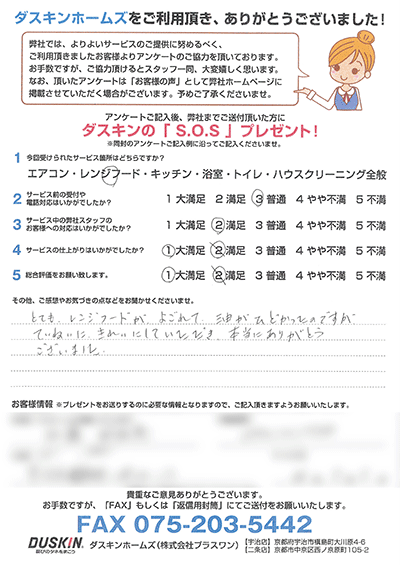 ダスキンホームズをご利用頂き、ありがとうございました!
弊社では、よりよいサービスのご提供に努めるべく、
ご利用頂きましたお客様よりアンケートのご協力を頂いております。
お手数ですが、ご協力頂けるとスタッフ一同、大変嬉しく思います。
なお、頂いたアンケートは「お客様の声」として弊社ホームページに
掲載させていただく場合がございます。予めご了承くださいませ。
アンケートご記入後、弊社までご送付頂いた方に
ダスキンの「S.O.S」プレゼント!
※同封のアンケートご記入例に沿ってご記入くださいませ。
1 今回受けられたサービス箇所はどちらですか?
エアコン・レンジフード・キッチン・浴室・トイレ・ハウスクリーニング全般
2 サービス前の受付や
電話対応はいかがでしたか?
1 大満足 2 満足 3 普通 4 やや不満 5 不満
3 サービス中の弊社スタッフの
お客様への対応はいかがでしたか?
1 大満足 2 満足 3 普通 4 やや不満 5 不満
4 サービスの仕上がりはいかがでしたか?
1 大満足 2 満足 3 普通 4 やや不満 5 不満
5 総合評価をお願い致します。
1 大満足 2 満足 3 普通 4 やや不満 5 不満
その他、ご感想やお気づきの点などをお聞かせくださいませ。
とても、レンジフードが、よごれて、油がひどかったのですが
ていねいに、きれいにしていただき、本当にありがとう
ございました。
お客様情報 ※プレゼントをお送りするのに必要な情報となりますので、ご記入頂きますようお願いいたします。
貴重なご意見ありがとうございます。
お手数ですが、「FAX」もしくは「返信用封筒」にてご送付をお願いいたします。
FAX 075-203-5442
DUSKIN
喜びのタネをまこう
ダスキンホームズ(株式会社プラスワン)
【宇治店】京都府宇治市槇島町大川原4-6
【二条店】京都市中京区西ノ京原町105-2